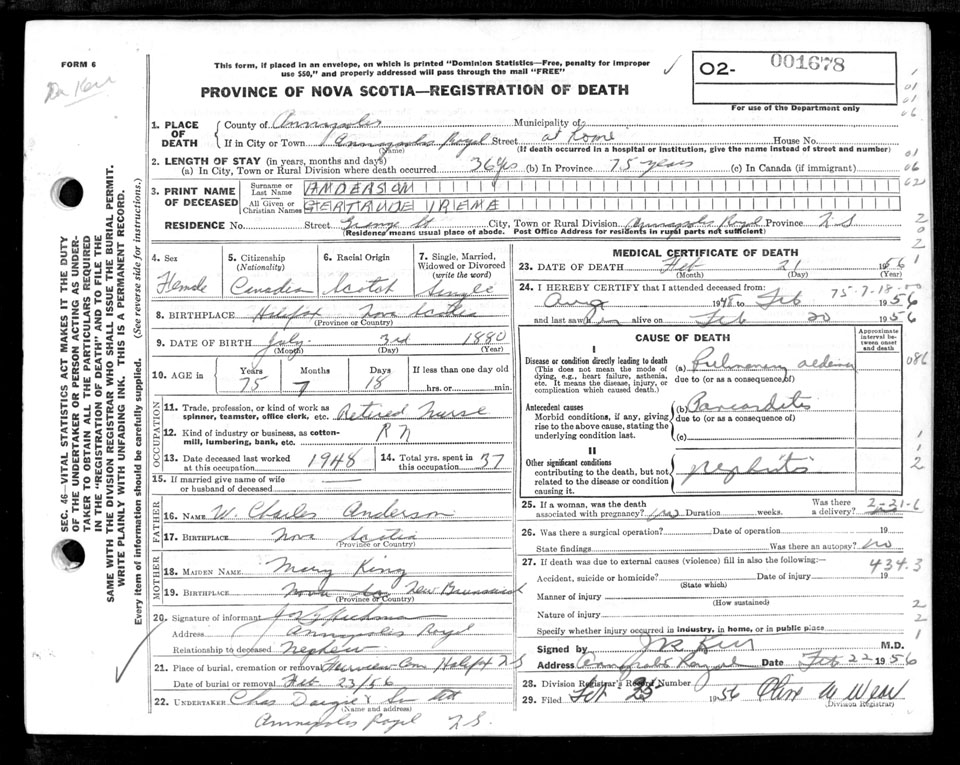 FORM 6
Dr Kerr
This form, if placed in an envelope, on which is printed "Dominion Statistics—Free, penalty for improper
use $50," and properly addressed will pass through the mail "FREE"
PROVINCE OF NOVA SCOTIA—REGISTRATION OF DEATH
O2- 001678
For use of the Department only
SEC. 46—VITAL STATISTICS ACT MAKES IT THE DUTY
OF THE UNDERTAKER OR PERSON ACTING AS UNDER-
TAKER TO OBTAIN ALL THE PARTICULARS REQUIRED
IN THE "REGISTRATION OF DEATH" AND TO FILE THE
SAME WITH THE DIVISION REGISTRAR WHO SHALL ISSUE THE BURIAL PERMIT.
WRITE PLAINLY WITH UNFADING INK. THIS IS A PERMANENT RECORD.
Every item of information should be carefully supplied. (See reverse side for instructions.)
1. PLACE OF DEATH
County of Annapolis Municipality of
If in City or Town Annapolis Royal Street at Home House No.
(Name) (If death occurred in a hospital or institution, give the name instead of street and number)
2. LENGTH OF STAY (in years, months and days)
(a) In City, Town or Rural Division where death occurred 36 yrs (b) In Province 75 years (c) In Canada (if immigrant)
3. PRINT NAME OF DECEASED
Surname or Last Name ANDERSON
All Given or Christian Names GERTRUDE IRENE
RESIDENCE No. Street Grange St City, Town or Rural Division Annapolis Royal Province N.S
(Residence means usual place of abode. Post Office Address for residents in rural parts not sufficient)
4. Sex 5. Citizenship (Nationality) 6. Racial Origin 7. Single, Married, Widowed or Divorced (write the word)
Female Canadian Scotch Single
8. BIRTHPLACE Halifax Nova Scotia
(Province or Country)
9. DATE OF BIRTH July 3rd 1880
(Month) (Day) (Year)
10. AGE IN Years Months Days If less than one day old
75 7 18 hrs. or min.
OCCUPATION
11. Trade, profession, or kind of work as spinner, teamster, office clerk, etc. Retired Nurse
12. Kind of industry or business, as cotton-mill, lumbering, bank, etc. R N
13. Date deceased last worked at this occupation 1948 14. Total yrs. spent in this occupation 37
15. If married give name of wife or husband of deceased
FATHER
16. NAME W. Charles Anderson
17. BIRTHPLACE Nova Scotia
(Province or Country)
MOTHER
18. MAIDEN NAME Mary King
19. BIRTHPLACE New Brunswick
(Province or Country)
20. Signature of informant
Address Annapolis Royal
Relationship to deceased nephew
21. Place of burial, cremation or removal Fairview Cem Halifax N.S
Date of burial or removal Feb 23/56
22. UNDERTAKER Chas Dargie & Son
(Name and address)
Annapolis Royal N.S.
MEDICAL CERTIFICATE OF DEATH
23. DATE OF DEATH Feb 21 1956
(Month) (Day) (Year)
24. I HEREBY CERTIFY that I attended deceased from: 75-7-18-00
Aug 1948 to Feb 1956
and last saw her alive on Feb 20 1956
CAUSE OF DEATH
Approximate interval between onset and death
I
Disease or condition directly leading to death
(This does not mean the mode of dying, e.g., heart failure, asthenia, etc. It means the disease, injury, or complication which caused death.)
(a) Pulmonary oedema
due to (or as a consequence of)
086
Antecedent causes
Morbid conditions, if any, giving rise to the above cause, stating the underlying condition last.
(b) Pancarditis
due to (or as a consequence of)
(c)
II
Other significant conditions contributing to the death, but not related to the disease or condition causing it.
nephritis
25. If a woman, was the death associated with pregnancy? no Duration weeks. Was there a delivery? 2-21-6
26. Was there a surgical operation? Date of operation 19
State findings Was there an autopsy? no
27. If death was due to external causes (violence) fill in also the following:— 434.3
Accident, suicide or homicide? Date of injury 19
(State which)
Manner of injury
(How sustained)
Nature of injury
Specify whether injury occurred in industry, in home, or in public place
Signed by Kerr M.D.
Address Annapolis Royal Date Feb 22 1956
28. Division Registrar's Record Number
29. Filed Feb 1956
(Division Registrar)